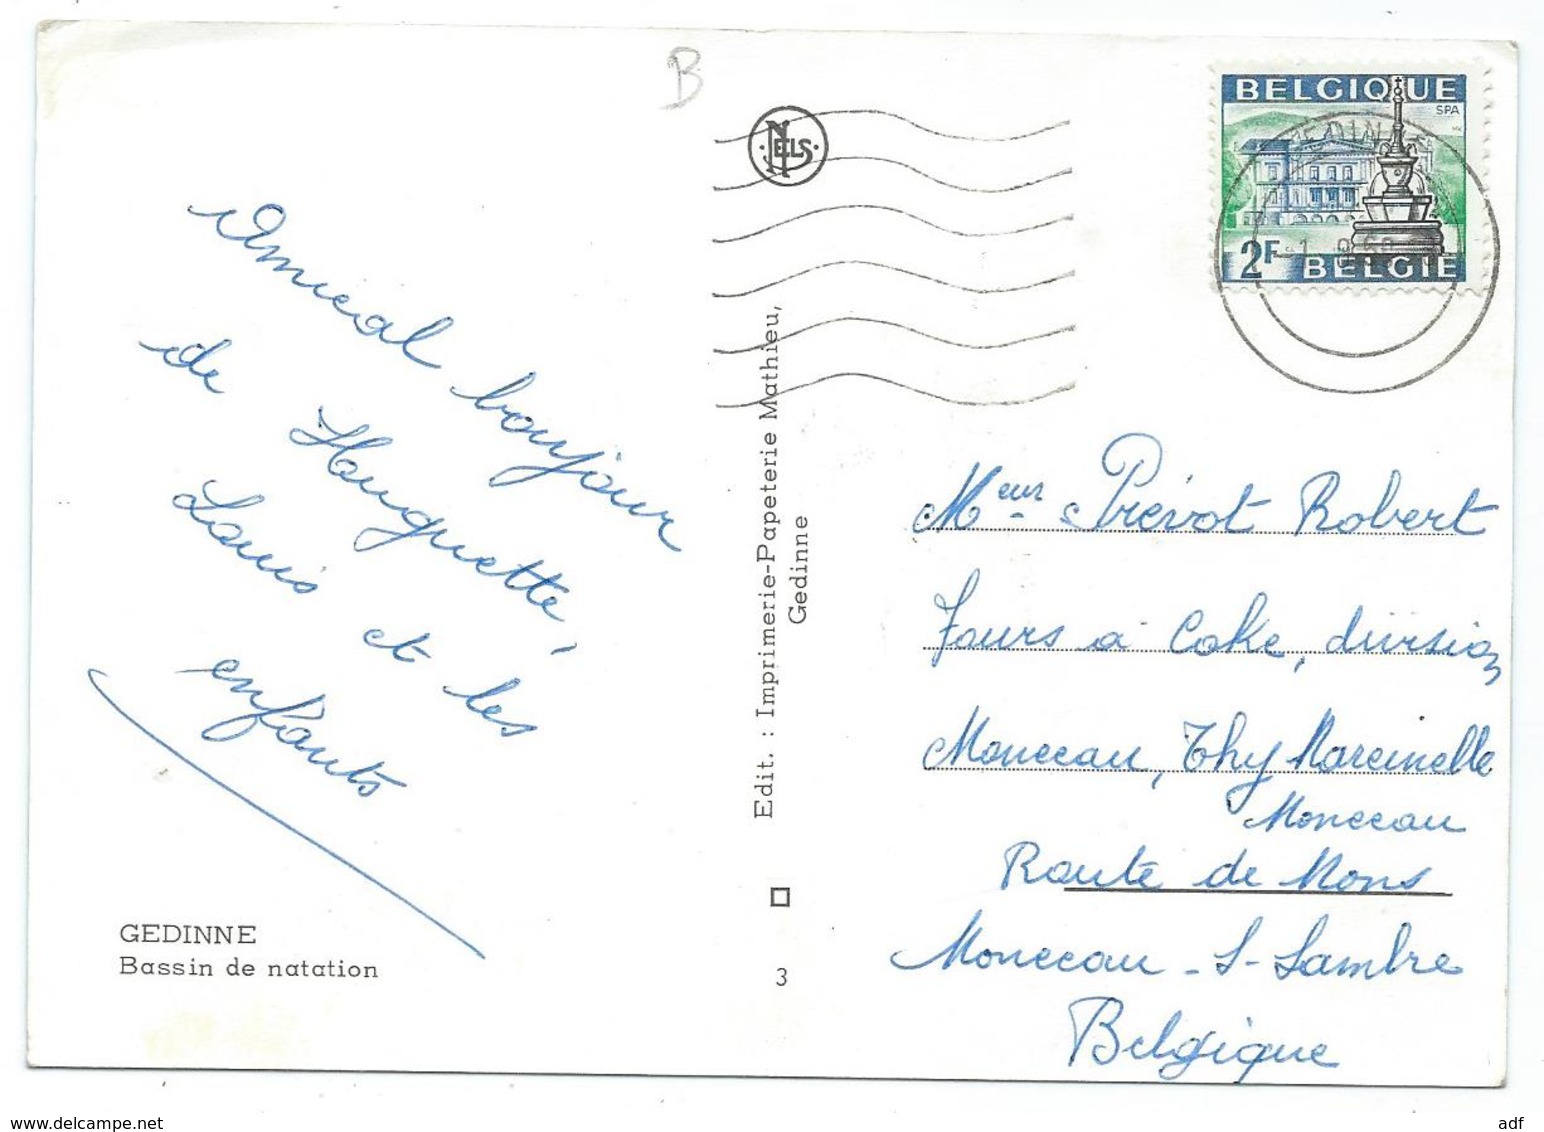 B
NELS
BELGIQUE
SPA
2F
BELGIE
Amical boujour
de Houguette,
Louis et les
enfants
Edit. : Imprimerie-Papeterie Mathieu,
Gedinne
Meur Prévot Robert
Fours a Coke, division
Monceau, Thy Marcinelle
Monceau
Route de Mons
Monceau-S-Sambre
Belgique
GEDINNE
Bassin de natation
3
www.delcampe.net
adf